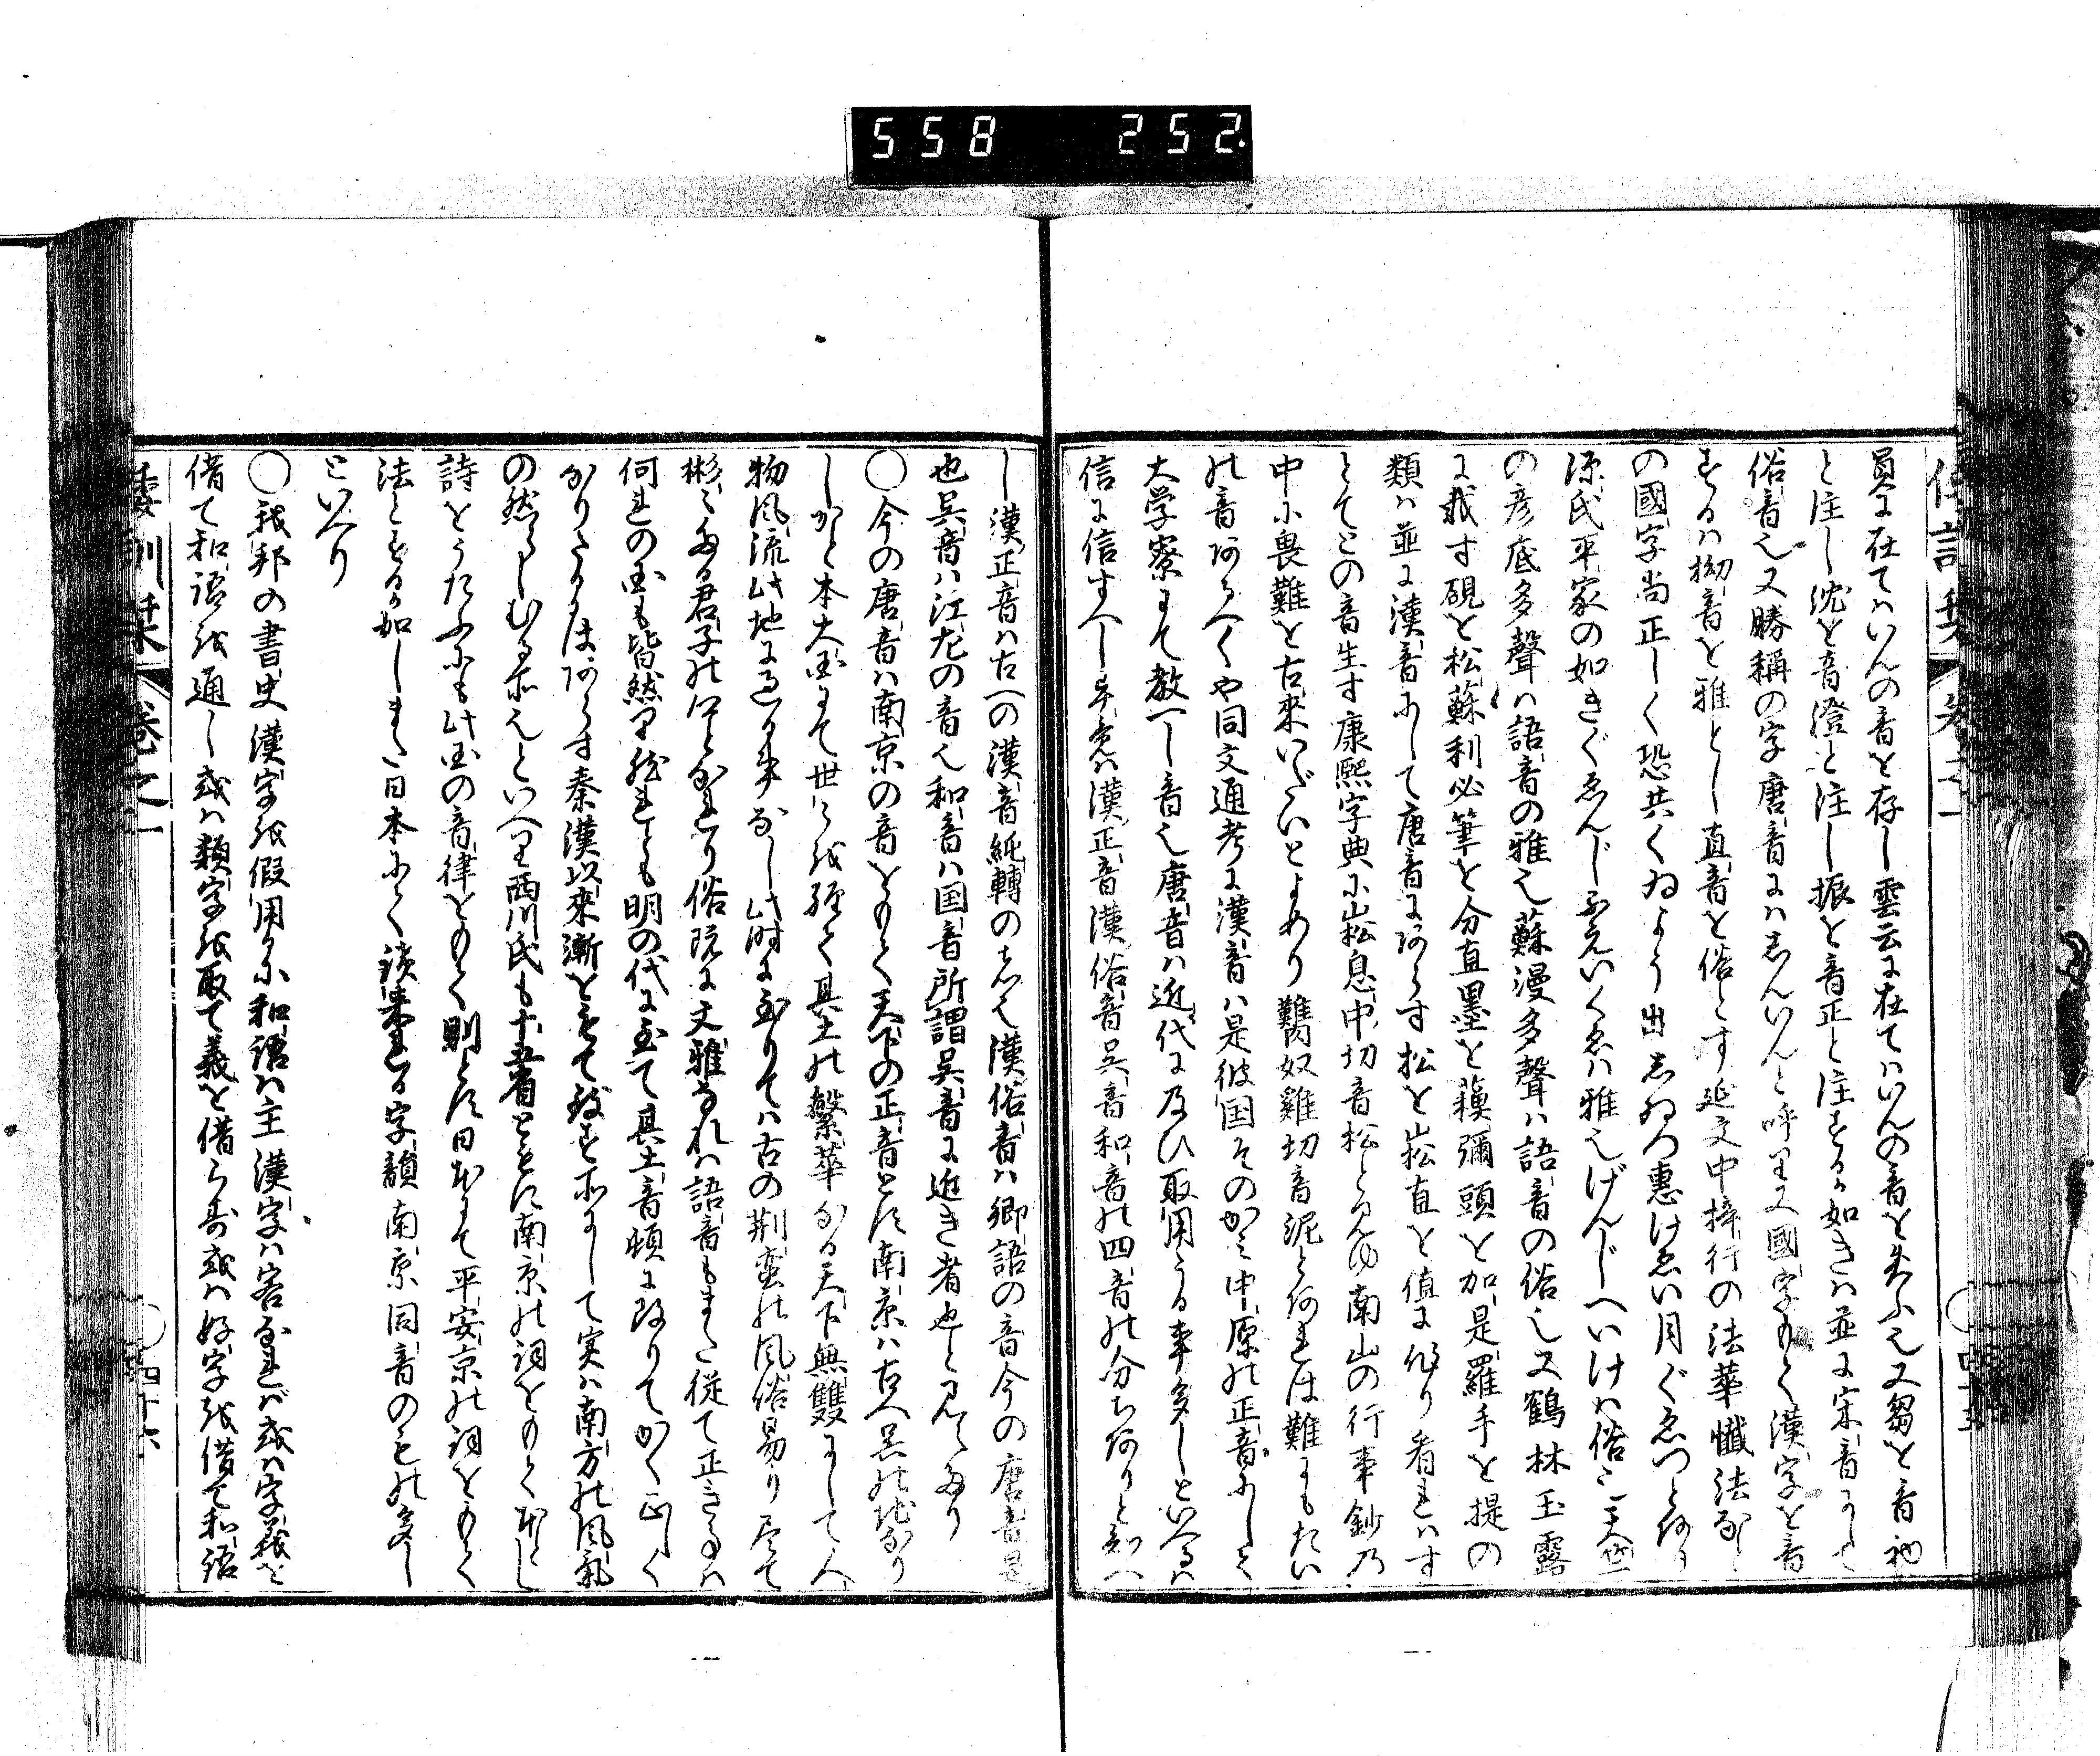 558 252.
員に在てハいんの音を存し雲云に在てハいんの音を失ふ也又芻を音初
と注し沈を音澄と注し振を音正と注するか如きハ並に宋音にして
俗音也又勝稱の字唐音にハあんいんと呼り又國字もて漢字を音
するハ拗音を雅とし直音を俗とす延文中梓行の法華懺法
の國字尚正しく恐共くゐよう出あゐつ惠けゑい月ぐゑつとあり
源氏平家の如きぐゑんじふえいくゑハ雅也げんじへいけハ俗也天竺
の彦底多聲ハ語音の雅也蘇漫多聲ハ語音の俗也又鶴林玉露
に載す硯を松蘇利必筆を分直墨を蘓彌頭を加是羅手を提の
類ハ並に漢音にして唐音にあらす松を崧直を値に作り看れハす
とてとの音生す康熙字典に崧息中切音松とみゆ南山の行事鈔乃
中に畏難を古来いだいとよめり難奴雞切音泥とあれは難にもたい
の音あるへくや同文通考に漢音ハ是彼国そのかミ中原の正音にして
大学寮にて教へし音也唐音ハ近代に及ひ取用うる事多しといへるハ
信に信すへし畢竟ハ漢正音漢俗音呉音和音の四音の分ちありと知へ
し漢正音ハ古への漢音純轉のあ也漢俗音ハ郷語の音今の唐音是
也呉音ハ江左の音也和音ハ国音所謂呉音に近き者也と見えたり
◯今の唐音ハ南京の音をもて天下の正音とす南京ハ古へ呉の地なり
しかと本大国にて世々を經て其土の繁華なる天下無雙にして人
物風流此地に過る事なし此時に至りてハ古の荆蛮の風俗易り尽て
彬々たる君子の風となれり俗既に文雅なれハ語音もまた従て正き事ハ
何れの国も皆然り然れとも明の代に至て具土音頓に改りてかく正しく
なりたるにはあらす秦漢以来漸をもて致す所にして実ハ南方の風氣
の然らしむる所也といへり西川氏も十五省ともに南京の詞をもて本とし
詩をうたふにも此国の音律をもて則とす日本にて平安京の詞をもて
法とするか如しまた日本にて讀来れる字韻南京同音のもの多し
といへり
◯我邦の書史漢字を假用るに和語ハ主漢字ハ客なれバ或ハ字義を
借て和語を通し或ハ類字を取て義を借らす或ハ好字を借て和語
倭訓栞 巻之一 ◯四十六